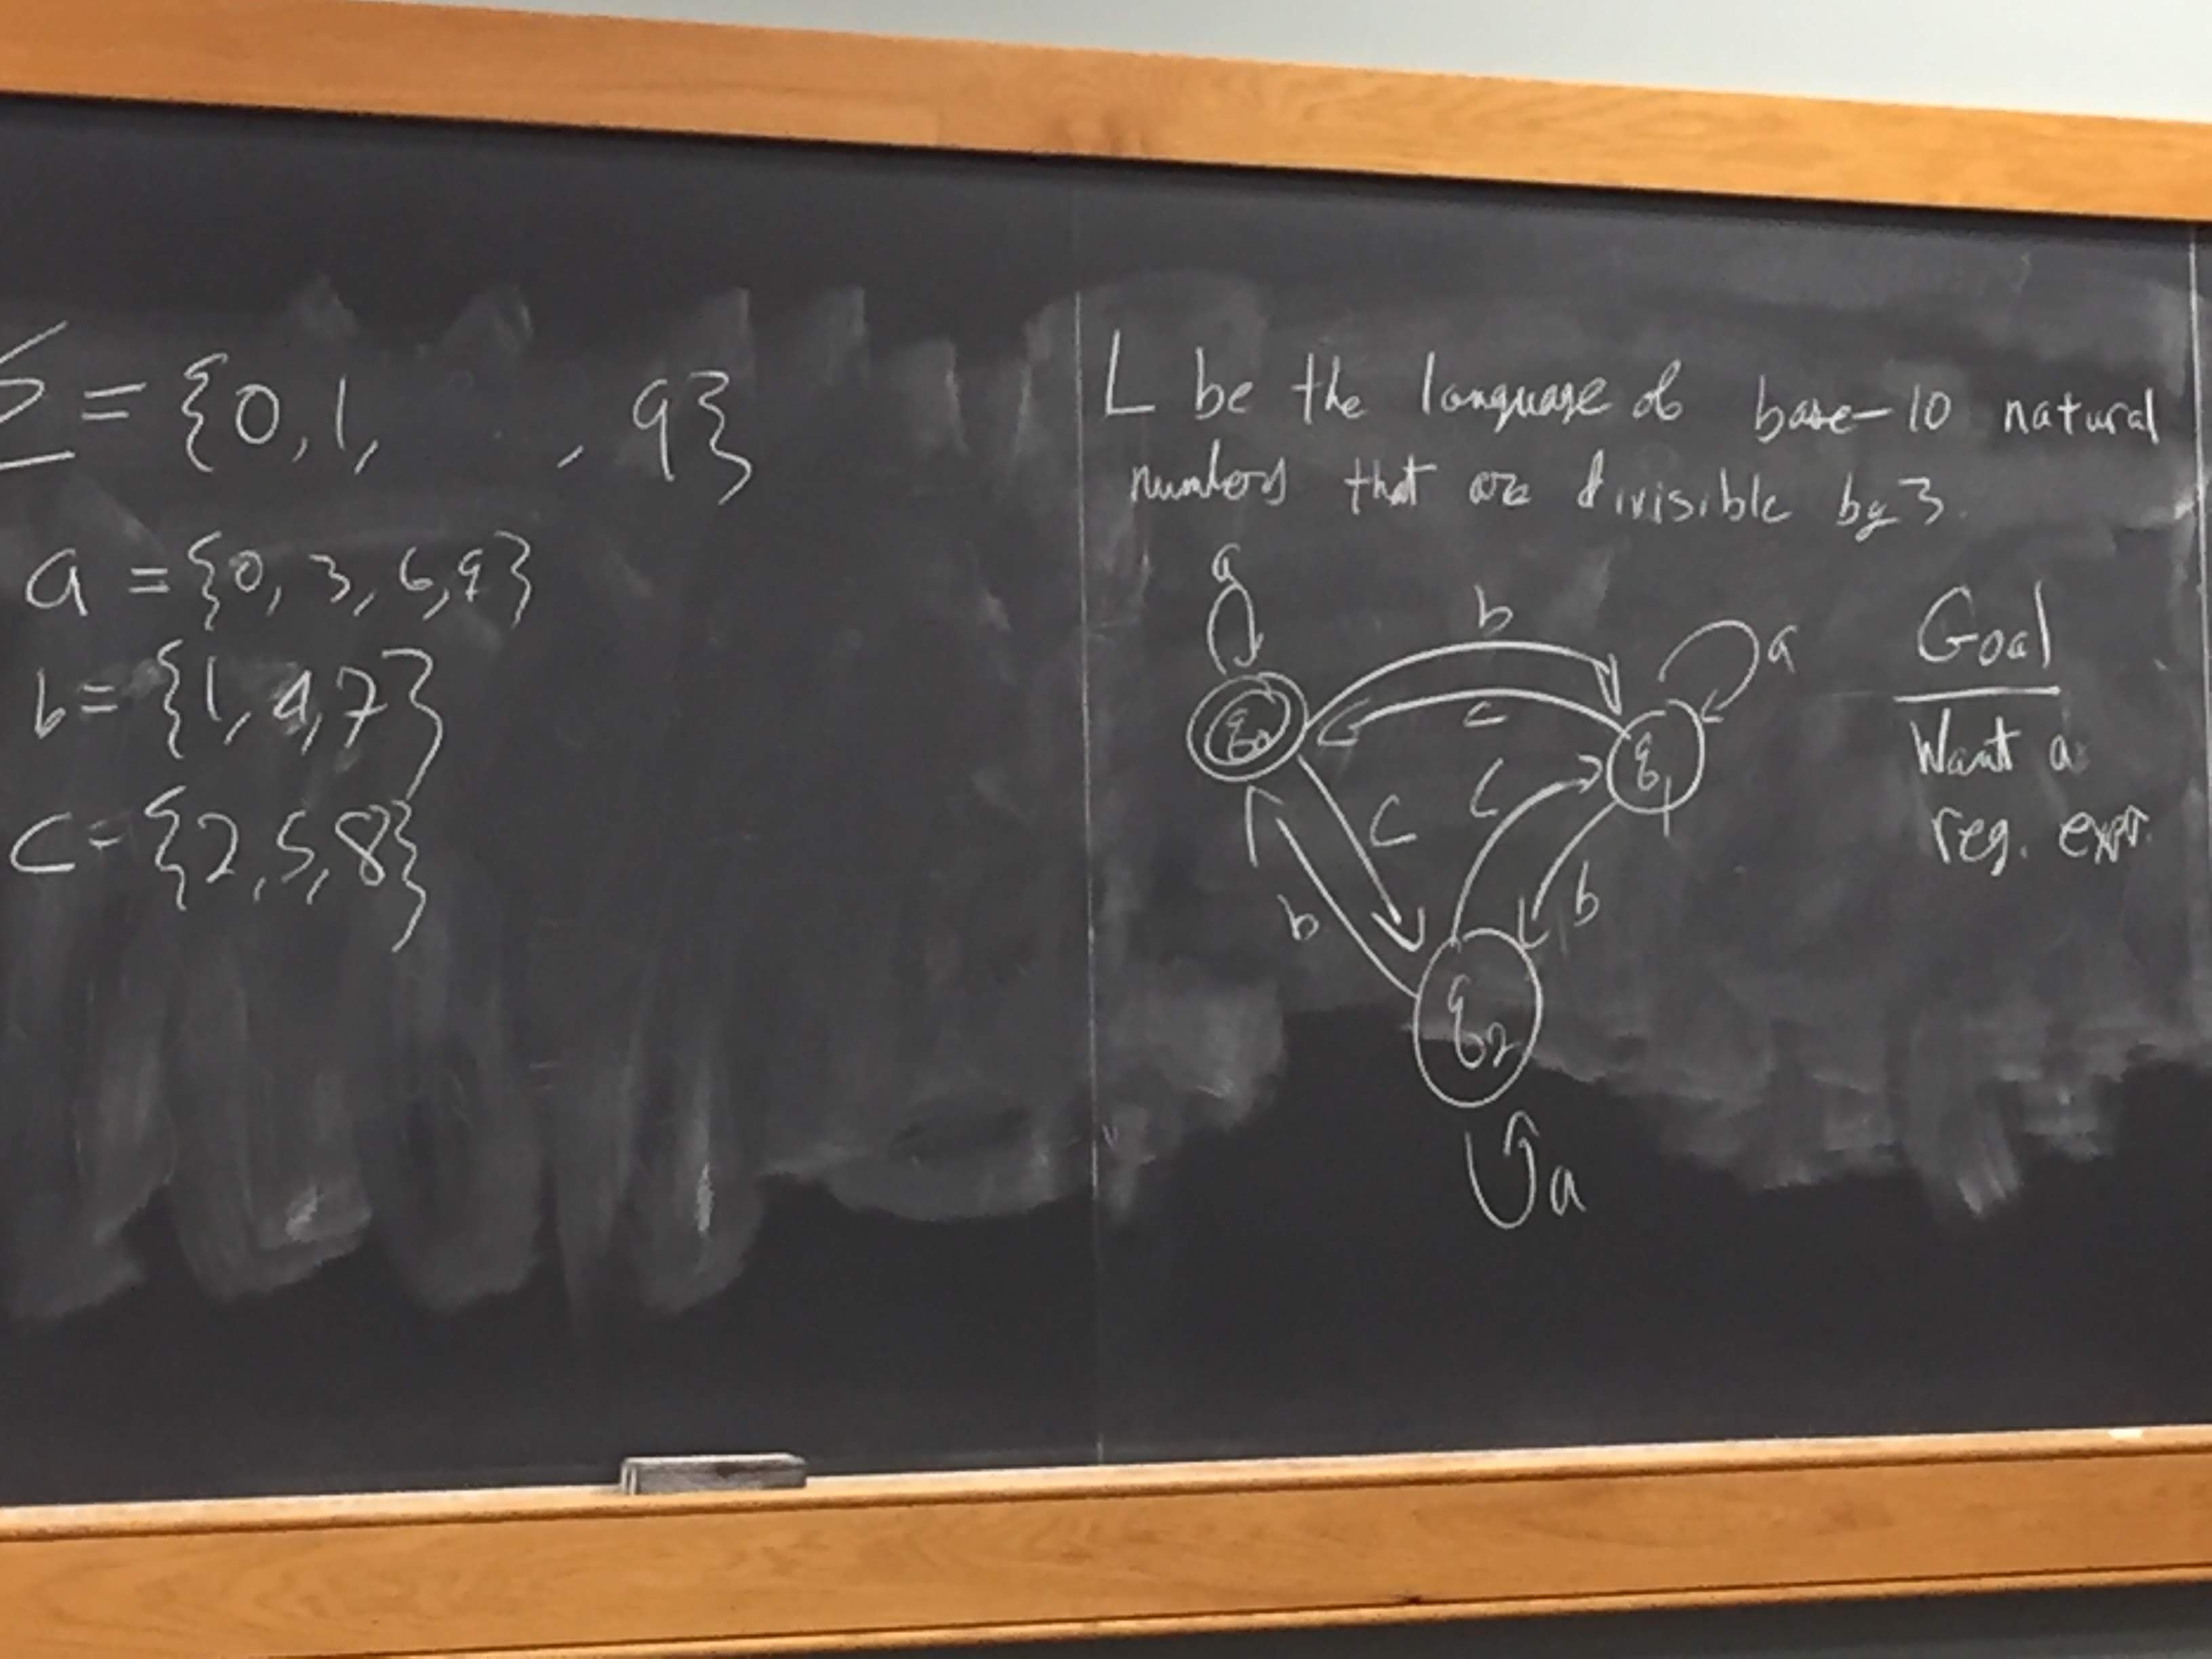 Σ = {0, 1, , 9}
a = {0, 3, 6, 9}
b = {1, 4, 7}
c = {2, 5, 8}
L be the language of base-10 natural
numbers that are divisible by 3.
a
b
a
c
q0
q1
c
c
b
b
q2
a
Goal
Want a
reg. expr.